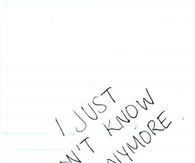 I JUST
DON'T KNOW
ANYMORE.